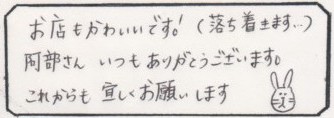 お店もかわいいです！（落ち着きます…）
阿部さん いつもありがとうございます。
これからも 宜しくお願いします